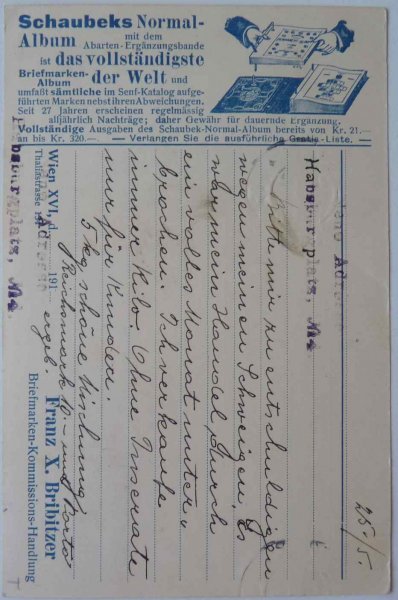 Schaubeks Normal-
Album mit dem
Abarten-Ergänzungsbande
ist das vollständigste
Briefmarken-
Album der Welt und
umfaßt sämtliche im Senf-Katalog aufge-
führten Marken nebst ihren Abweichungen.
Seit 27 Jahren erscheinen regelmässig
alljährlich Nachträge; daher Gewähr für dauernde Ergänzung.
Vollständige Ausgaben des Schaubek-Normal-Album bereits von Kr. 21.—
an bis Kr. 320.—. — Verlangen Sie die ausführliche Gratis-Liste. —
25/5.
Adresse
Habsburgplatz, No 4
Bitte mir zu entschuldigen
wegen meinen Schweigen. Es
war mein Handel durch
ein volles Monat unter-
brochen. Ich verkaufe
immer Kilo- Ohne Inserate
nur für Kunden.
5 kg schöne Mischung
Reichsmark 10- und Porto
Wien XVI, d. 191
Thaliastrasse
ergb. Franz X. Bribitzer
Briefmarken-Kommissions-Handlung
Adresse
Habsburgplatz, No 4.